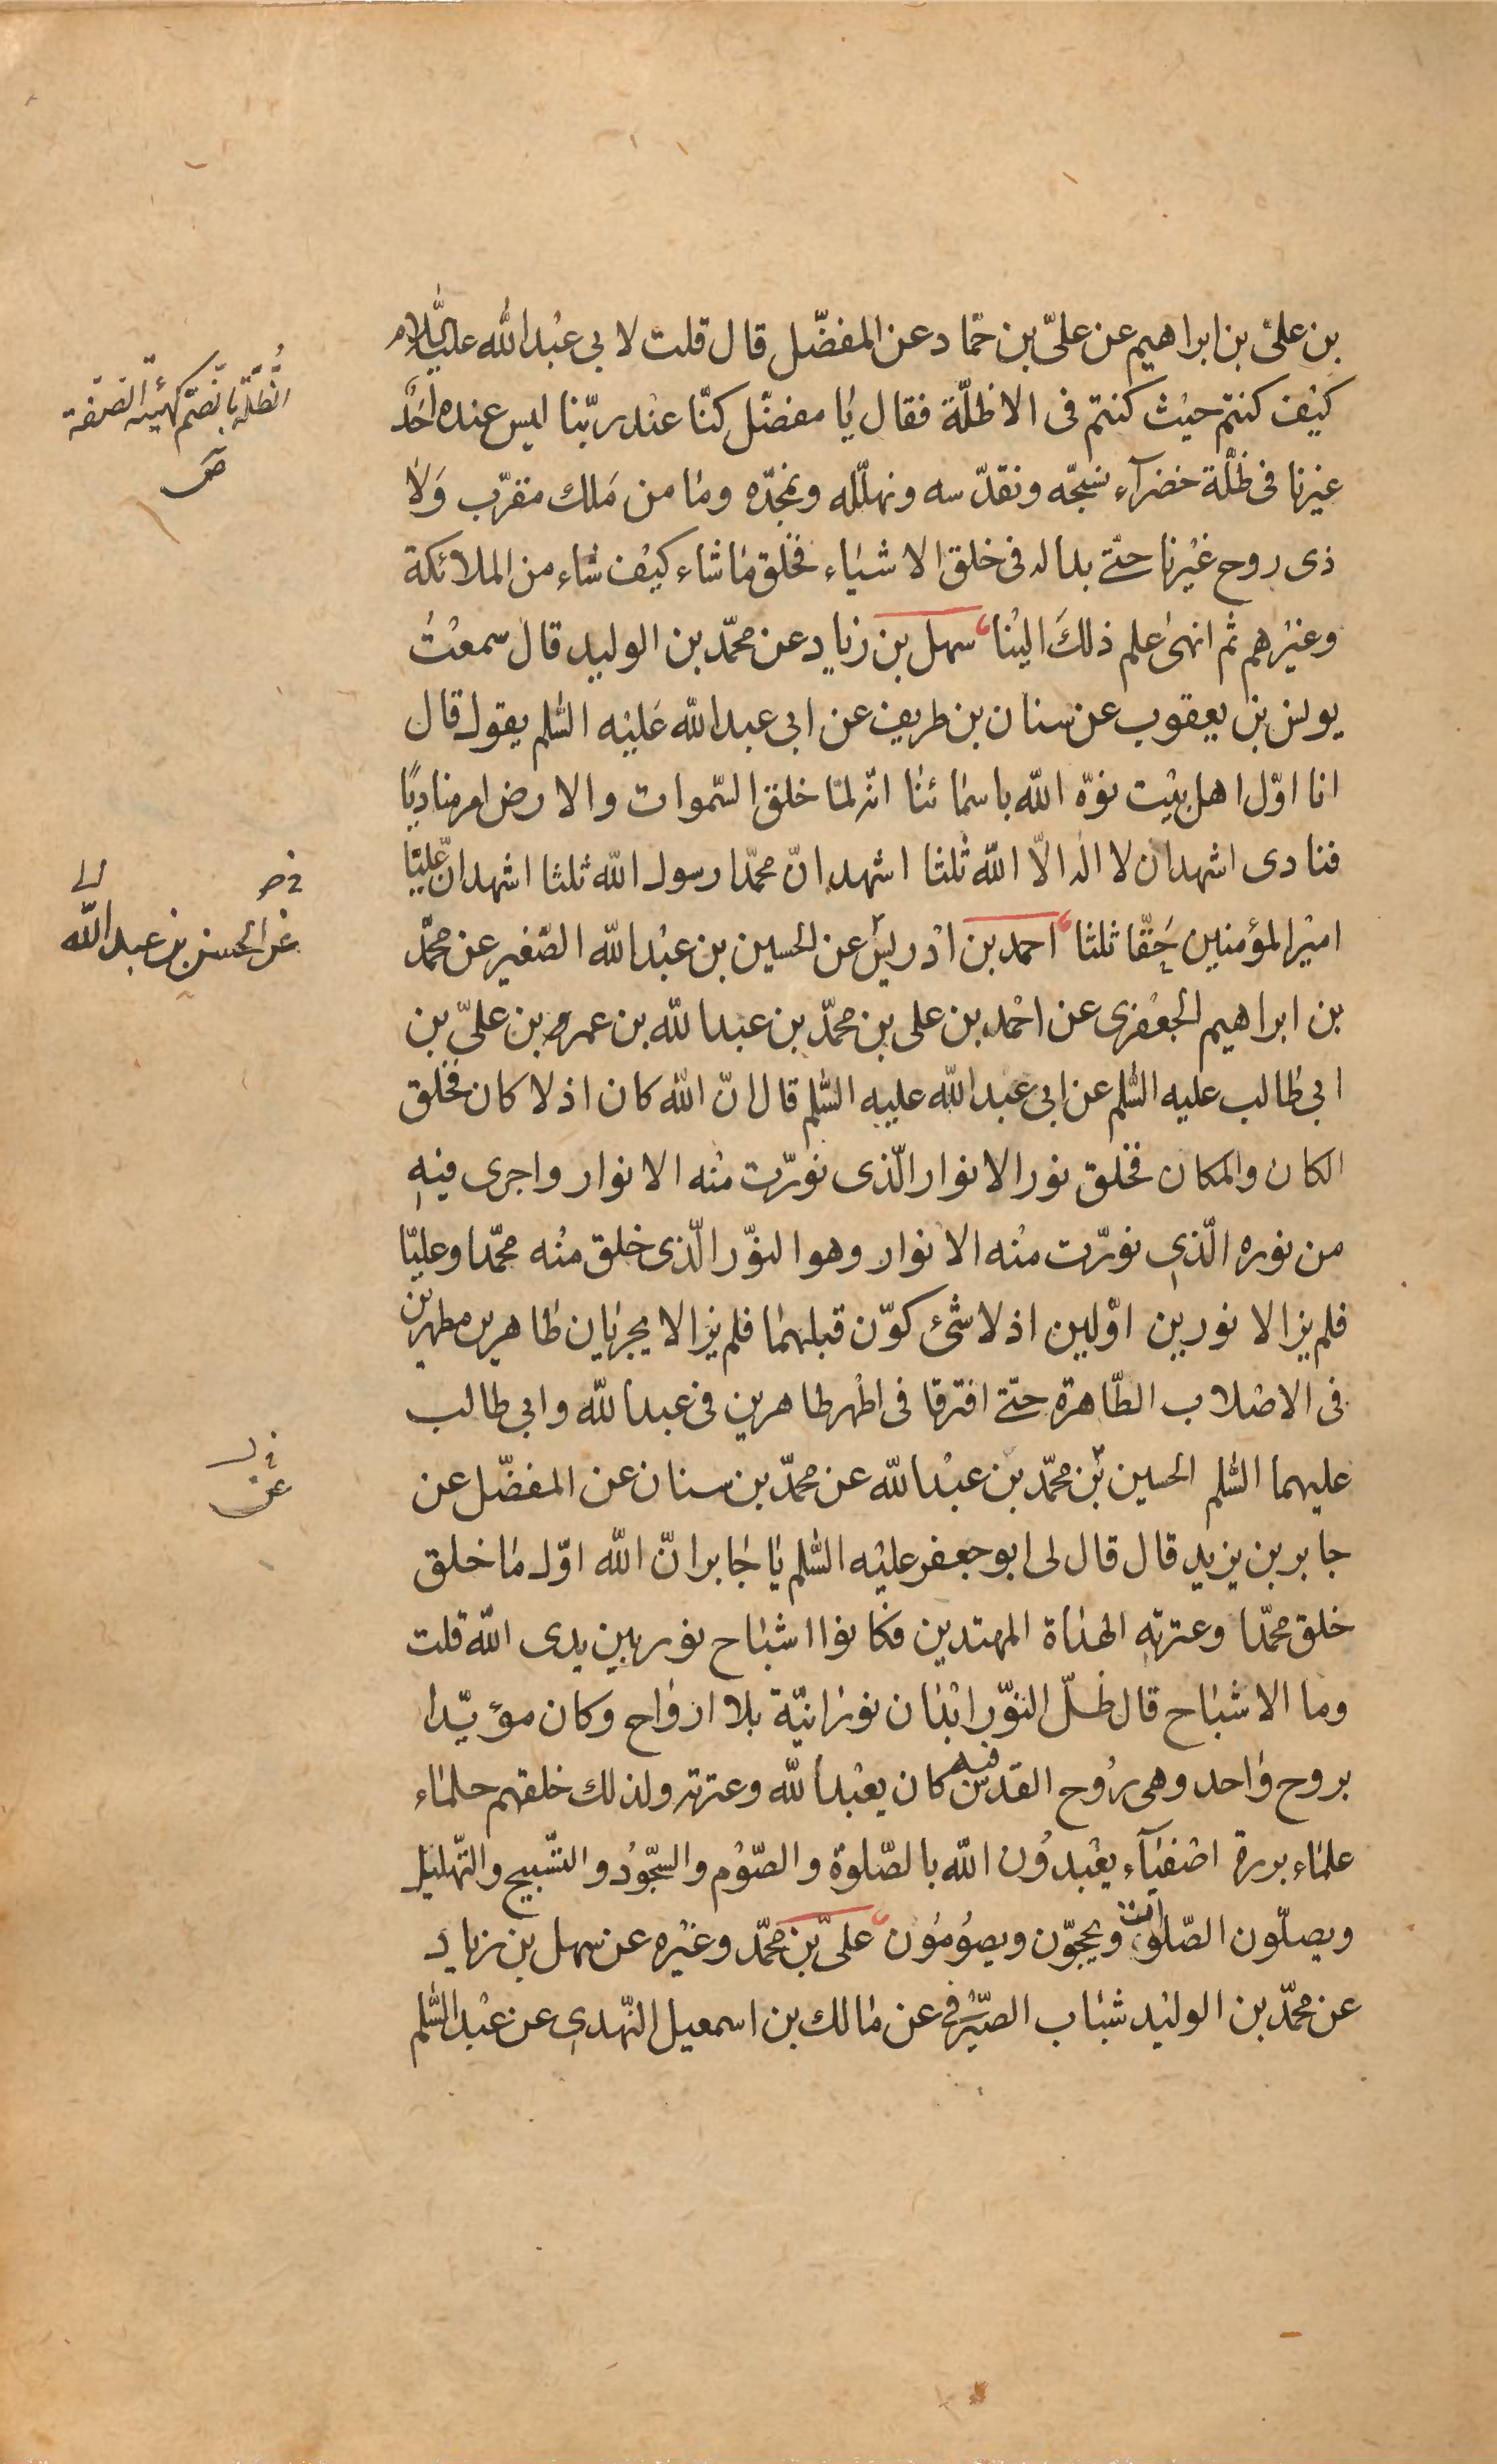 بن علی بن ابراهیم عن علیّ بن حمّاد عن المفضّل قال قلت لابی عبد الله علیه السّلام
کیف کنتم حیث کنتم فی الاظلّة فقال یا مفضّل کنّا عند ربّنا لیس عنده احدٌ
غیرنا فی ظلّة خضرآء نسبّحه ونقدّسه ونهلّله ونمجّده وما من ملك مقرّب ولا
ذی روح غیرنا حتّی بدا له فی خلق الاشیاء فخلق ما شاء کیف شاء من الملائکة
وغیرهم ثم انهی علم ذلك الینا سهل بن زیاد عن محمّد بن الولید قال سمعت
یونس بن یعقوب عن سنان بن طریف عن ابی عبد الله علیه السّلم یقول قال
انا اوّل اهل بیت نوّه الله باسمائنا انّه لمّا خلق السّموات والارض امر منادیًا
فنادی اشهد ان لا اله الّا الله ثلثا اشهد انّ محمّدا رسول الله ثلثا اشهد انّ علیًّا
امیر المؤمنین حقّا ثلثا احمد بن ادریس عن الحسین بن عبد الله الصّغیر عن محمّد
بن ابراهیم الجعفری عن احمد بن علی بن محمّد بن عبد الله بن عمر بن علیّ بن
ابی طالب علیه السّلم عن ابی عبد الله علیه السّلم قال انّ الله کان اذ لا کان فخلق
الکان والمکان فخلق نور الانوار الّذی نوّرت منه الانوار واجری فیه
من نوره الّذی نوّرت منه الانوار وهو النّور الّذی خلق منه محمّدا وعلیّا
فلم یزالا نورین اوّلین اذ لا شئ کوّن قبلهما فلم یزالا یجریان طاهرین مطهرین
فی الاصلاب الطّاهرة حتّی افترقا فی اطهر طاهرین فی عبد الله وابی طالب
علیهما السّلم الحسین بن محمّد بن عبد الله عن محمّد بن سنان عن المفضّل عن
جابر بن یزید قال قال لی ابو جعفر علیه السّلم یا جابر انّ الله اوّل ما خلق
خلق محمّدا وعترته الهداة المهتدین فکانوا اشباح نور بین یدی الله قلت
وما الاشباح قال ظلّ النّور ابدان نورانیّة بلا ارواح وکان مؤیّدا
بروح واحد وهی روح القدس فبه کان یعبد الله وعترته ولذلك خلقهم حلماء
علماء بررة اصفیآء یعبدون الله بالصّلوة والصّوم والسّجود والتّسبیح والتّهلیل
ویصلّون الصّلوات ویحجّون ویصومون علیّ بن محمّد وغیره عن سهل بن زیاد
عن محمّد بن الولید شباب الصّیرفی عن مالك بن اسمعیل النّهدی عن عبد السّلم
الظُّلّة بالضّم کهیئة الصّفة
ص
عن الحسن بن عبد الله
عن